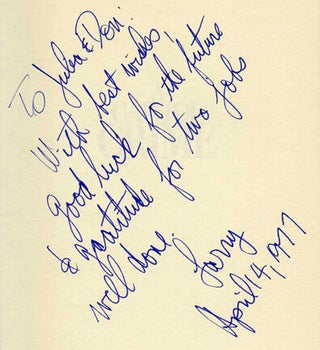 To Julea & Don:
With best wishes,
good luck for the future
& gratitude for two jobs
well done.
Larry
April 14, 1977